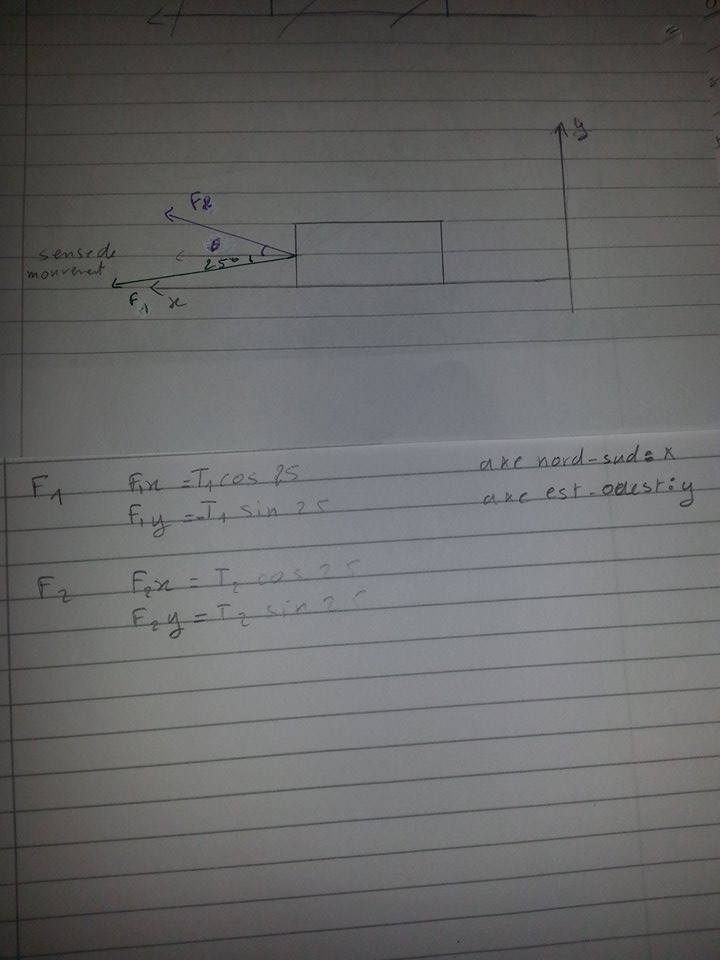 y
F2
θ
sens de
mouvement
25°
F1
x
axe nord-sud: x
F1 F1x = T1 cos 25
axe est-ouest: y
F1y = -T1 sin 25
F2 F2x = T2 cos 25
F2y = T2 sin 25